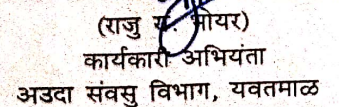 (राजु य. भोयर)
कार्यकारी अभियंता
अउदा संवसु विभाग, यवतमाळ